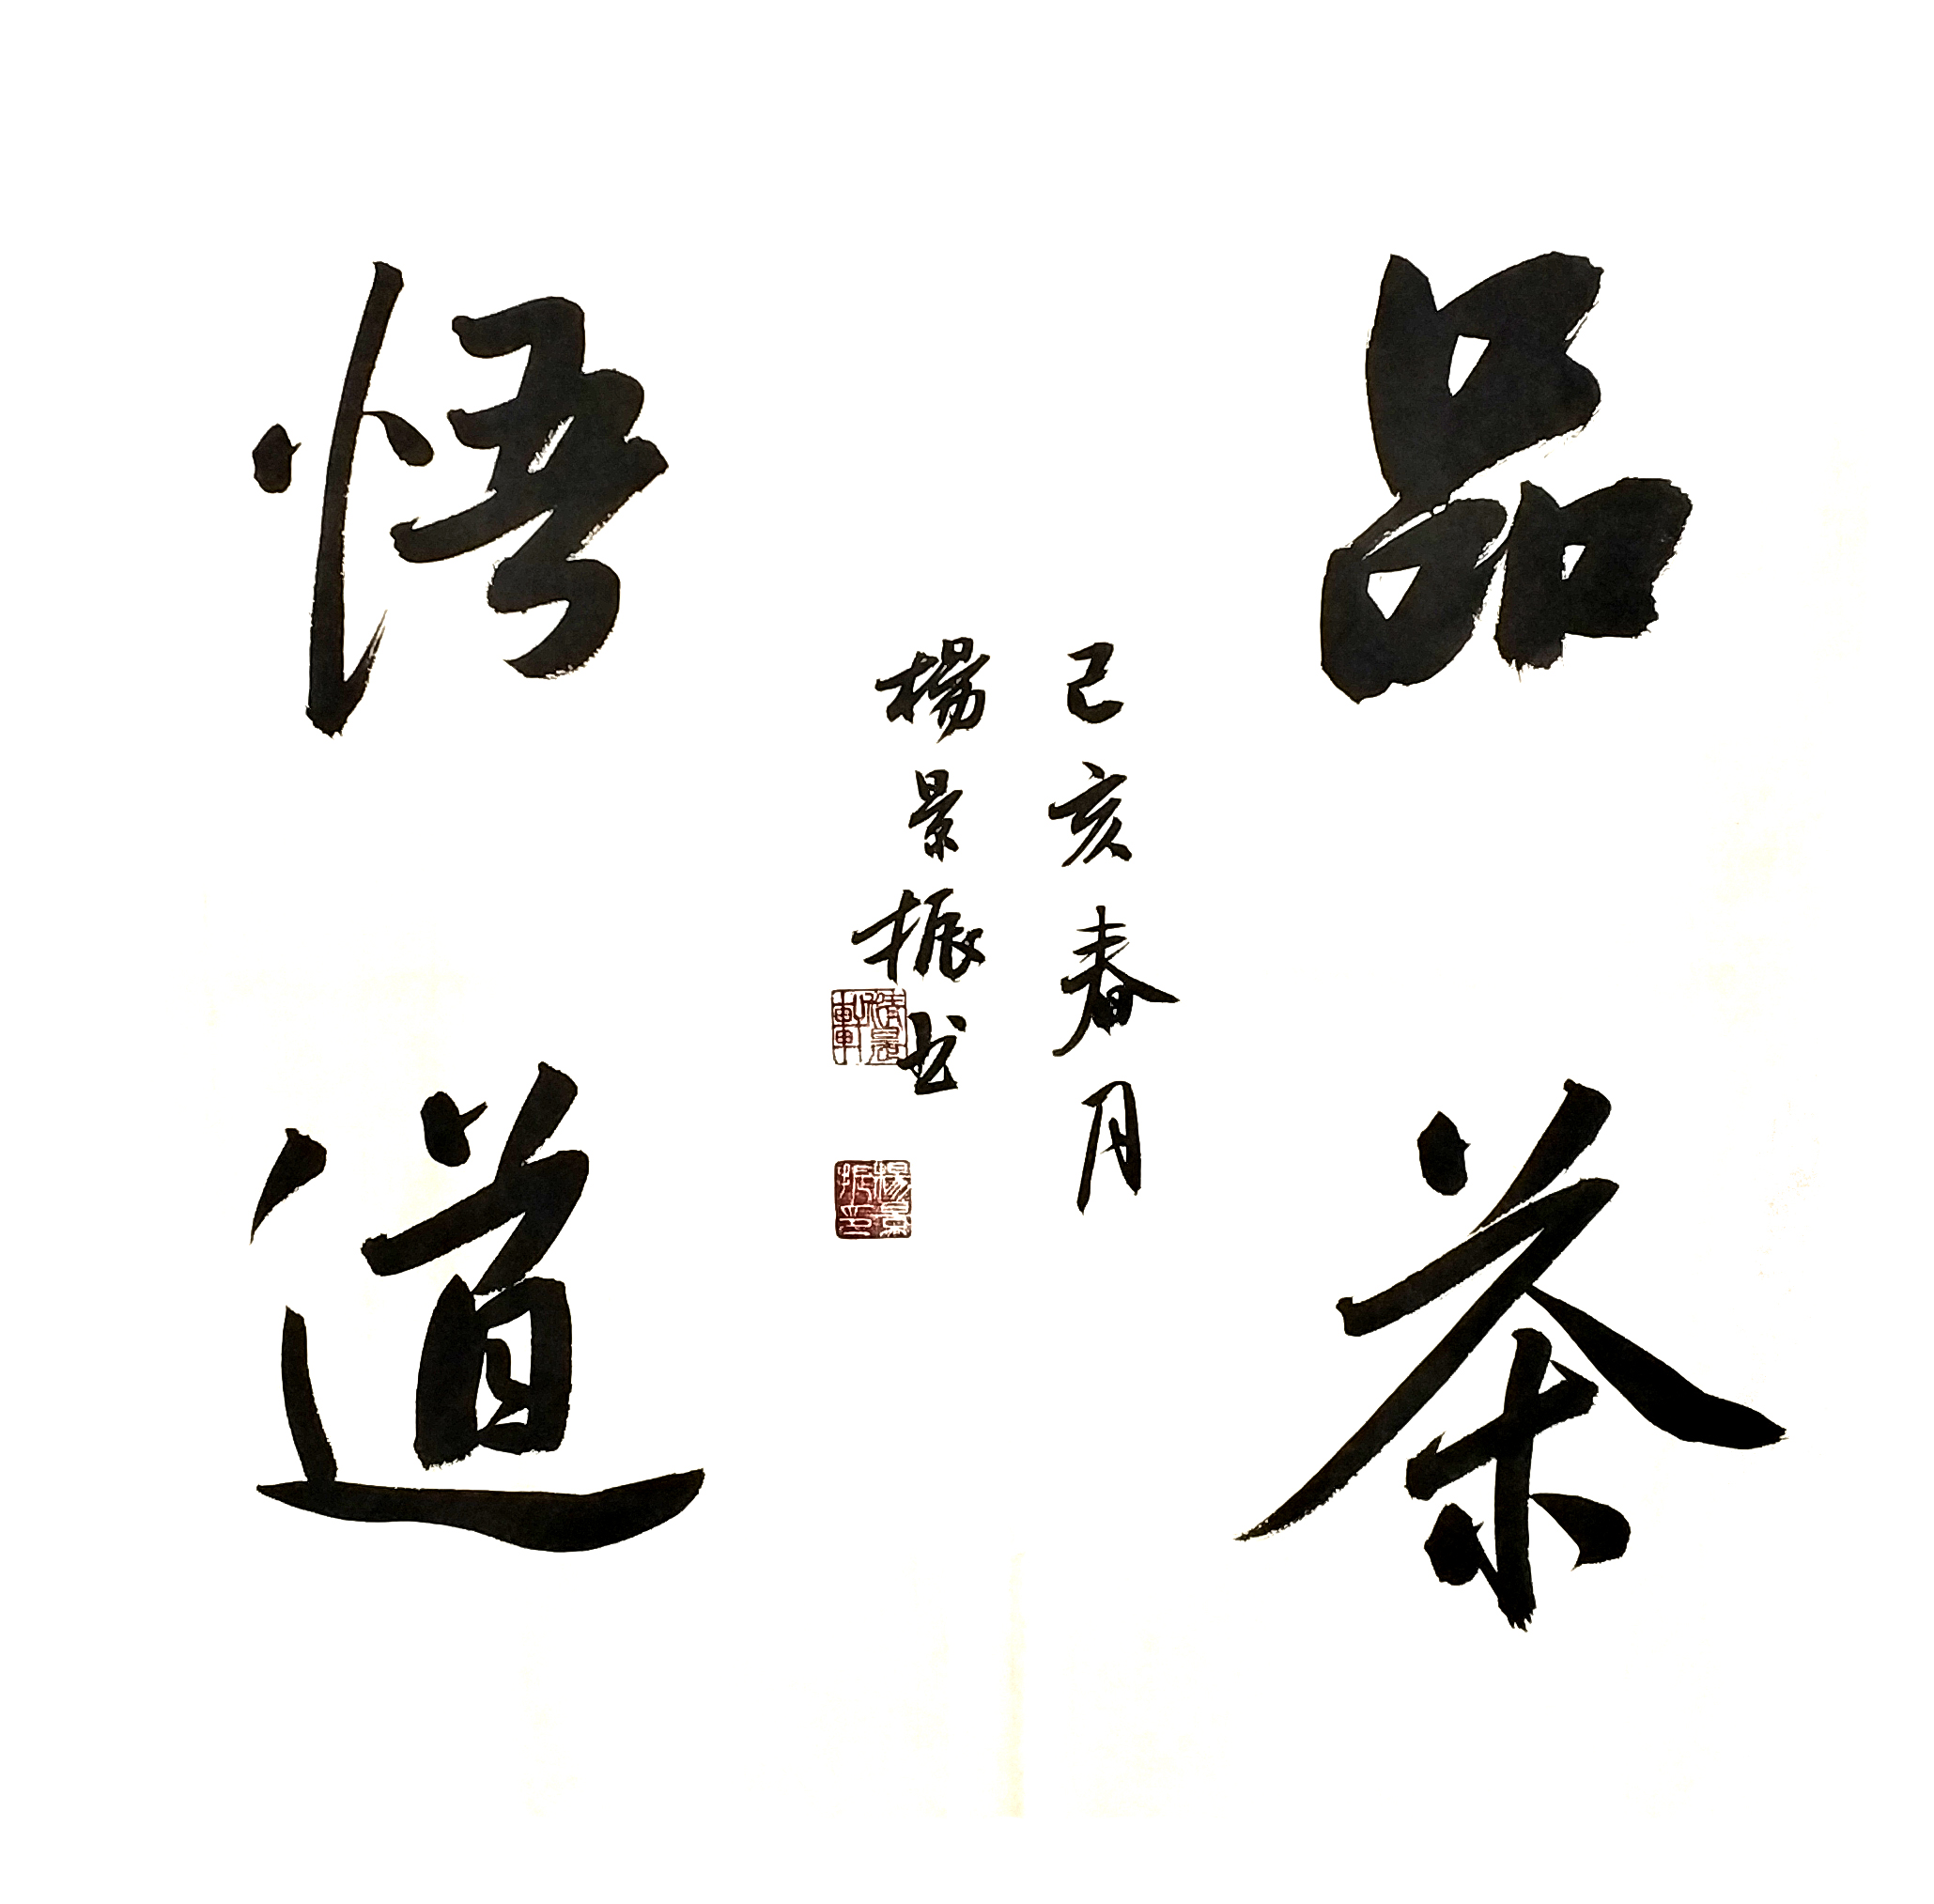 品茶
悟道
己亥春月
楊景振书
楊景振印